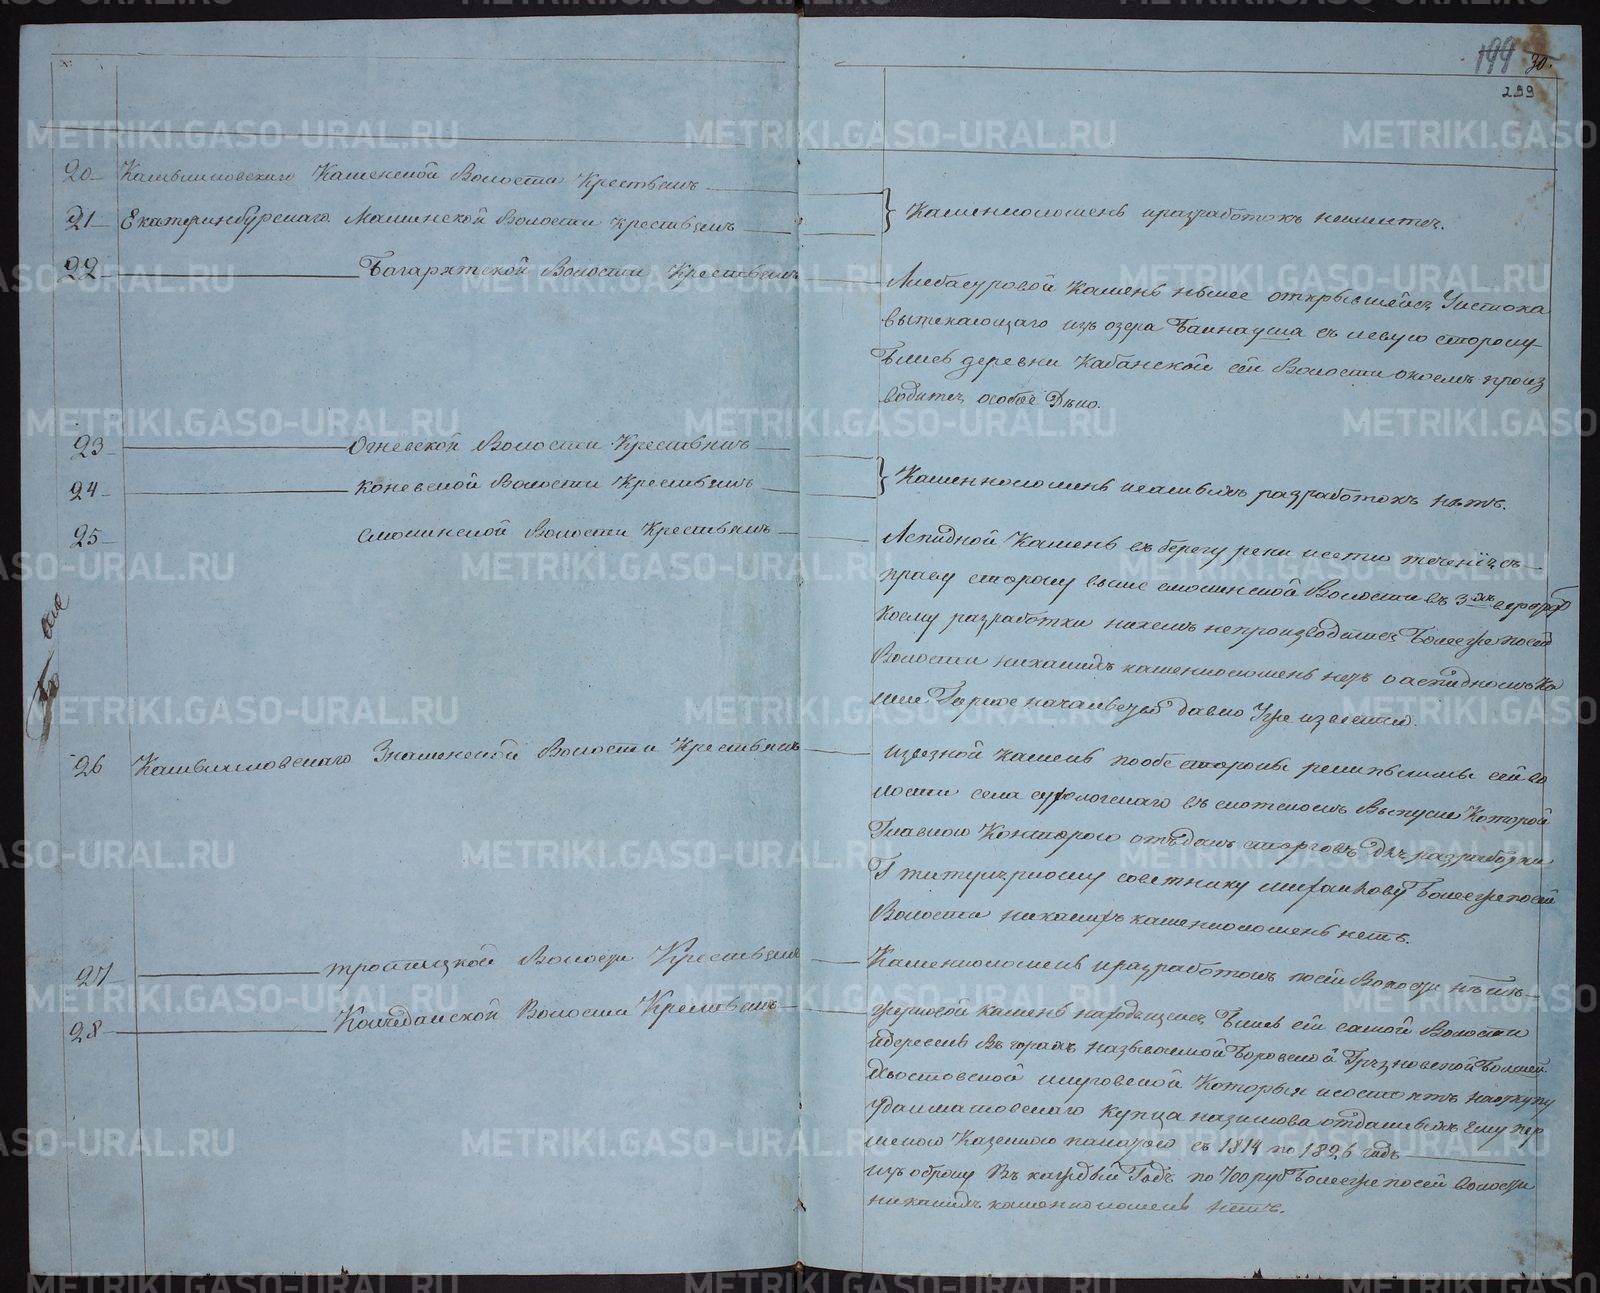 199 30.
299
20 Камышловскаго Каменской Волости Крестьянъ
21 Екатеринбурскаго Маминской Волости крестьянъ
Каменноломень и разработокъ неимеется.
22 Багарятской Волости Крестьянъ
Камень ныне открывшейся Уистока
вытекающаго изъ озера съ левую сторону
близь деревни Кабанской сей Волости окоемъ произ
водится особое Дело.
23 Огневской Волости Крестьянъ
24 Коневской Волости Крестьянъ
Каменноломень разработокъ нетъ.
25 Смолинской Волости Крестьянъ
Аспидной Камень въ берегу реки исети течениемъ
праву сторону выше смолинской Волости въ 3хъ верстахъ
Коему разработки никемъ непроизводилось Более же посей
Волости никакихъ каменноломень нетъ о аспидномъ Ка
мне Горное начальство давно уже известно.
26 Камышловскаго Знаменской Волости Крестьянъ
известной Камень пообе стороны реки пышмы сей во
лости села сухоложскаго въ скотскомъ Выпуске Которой
Главною Конторою отъданъ сторговъ для разработки
Г титулярному советнику Более же посей
Волости никакихъ каменноломень нетъ.
27 троицкой Волости Крестьянъ
Каменноломень и разработокъ посей Волости нетъ
28 Колчеданской Волости Крестьянъ
жерновой камень находящейся близь сей самой Волости
Въ горахъ называемой Боровской
Которыя и состоятъ наоткупу
Удалматовскаго Купца назимова отданыхъ Ему пер
мскою Казенною палатою съ 1814 по 1826 годъ
изъ оброку Въ каждый Годъ по 700 руб Более же посей Волости
никакихъ каменноломень нетъ.
METRIKI.GASO-URAL.RU